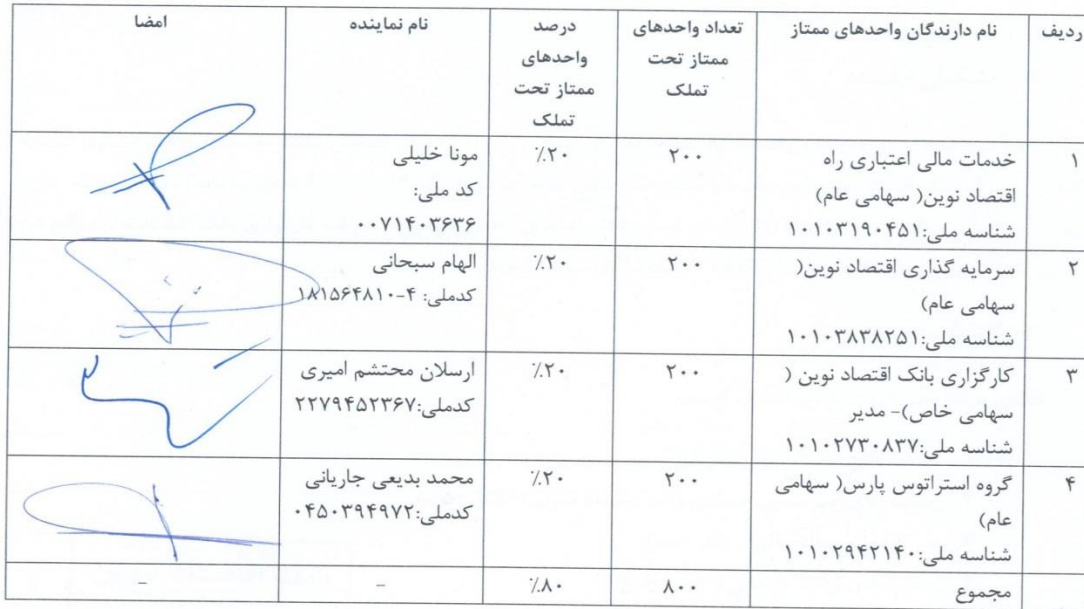 ردیف
نام دارندگان واحدهای ممتاز
تعداد واحدهای
ممتاز تحت
تملک
درصد
واحدهای
ممتاز تحت
تملک
نام نماینده
امضا
۱
خدمات مالی اعتباری راه
اقتصاد نوین( سهامی عام)
شناسه ملی:۱۰۱۰۳۱۹۰۴۵۱
۲۰۰
٪۲۰
مونا خلیلی
کد ملی:
۰۰۷۱۴۰۳۶۳۶
۲
سرمایه گذاری اقتصاد نوین(
سهامی عام)
شناسه ملی:۱۰۱۰۳۸۳۸۲۵۱
۲۰۰
٪۲۰
الهام سبحانی
کدملی: ۴-۱۸۱۵۶۴۸۱۰
۳
کارگزاری بانک اقتصاد نوین (
سهامی خاص)- مدیر
شناسه ملی:۱۰۱۰۲۷۳۰۸۳۷
۲۰۰
٪۲۰
ارسلان محتشم امیری
کدملی:۲۲۷۹۴۵۲۳۶۷
۴
گروه استراتوس پارس( سهامی
عام)
شناسه ملی:۱۰۱۰۲۹۴۲۱۴۰
۲۰۰
٪۲۰
محمد بدیعی جاریانی
کدملی:۰۴۵۰۳۹۴۹۷۲
مجموع
۸۰۰
٪۸۰
-
-